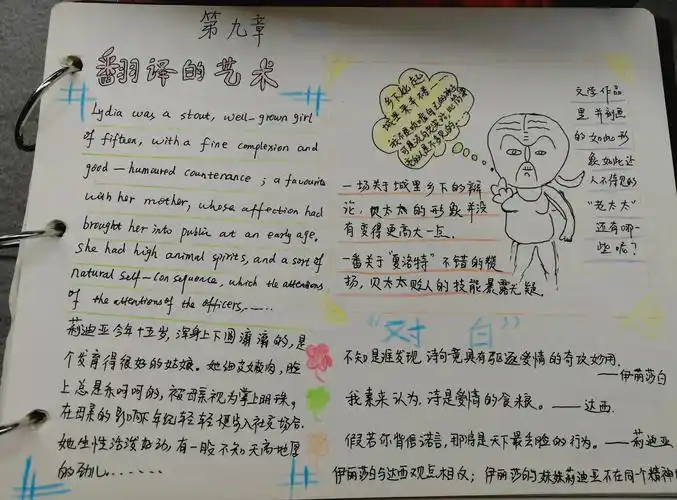 第九章
翻译的艺术
Lydia was a stout, well-grown girl
of fifteen, with a fine complexion and
good-humoured countenance; a favourite
with her mother, whose affection had
brought her into public at an early age.
she had high animal spirits, and a sort of
natural self-consequence, which the attentions
of the attentions of the officers,......
莉迪亚今年十五岁,浑身上下圆滚滚的,是
个发育得很好的姑娘。她细皮嫩肉,脸
上总是乐呵呵的,被母亲视为掌上明珠。
在母亲的影响下年纪轻轻便步入社交场合.
她生性活泼好动,有一股不知天高地厚
的劲儿......
一场关于城里乡下的辩
论,贝太太的形象并没
有变得更高大一点.
一番关于"夏洛特"不错的模
场,贝太太贬人的技能暴露无疑.
文学作品
里 并刻画
的如此形
象如此让
人不待见的
"老太太"
还有哪一
些呢?
"对 白"
不知是谁发现 诗句竟具有驱逐爱情的奇效妙用.
——伊丽莎白
我素来认为,诗是爱情的食粮。——达西.
假若你背信谎言,那将是天下最丢脸的行为。——莉迪亚
伊丽莎白与达西观点相仪;伊丽莎的妹妹莉迪亚不在同个精神